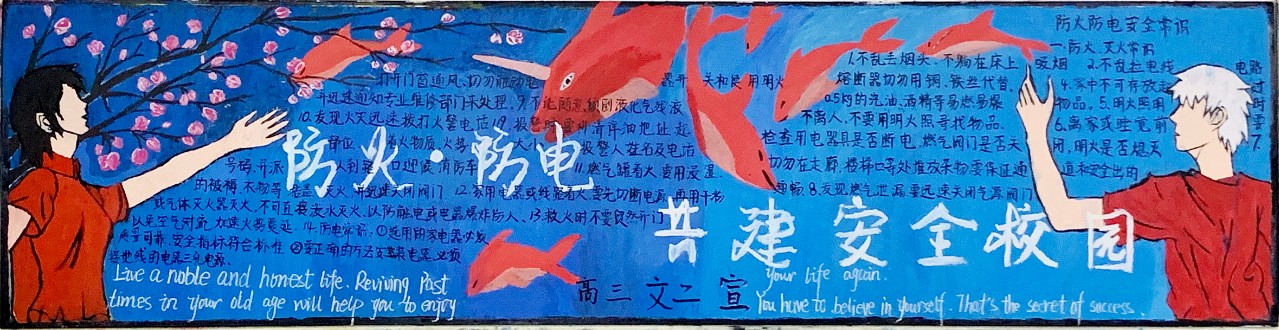 防火防电安全常识
一.防火、灭火常识
1.不乱丢烟头,不躺在床上吸烟 2.不乱拉电线
熔断器切勿用铜、铁丝代替. 4.家中不可存放
0.5kg的汽油、酒精等易燃易爆物品. 5.明火照明
不离人,不要用明火照寻找物品. 6.离家或睡觉前
检查用电器具是否断电,燃气阀门是否关闭,明火是否熄灭 7.
切勿在走廊、楼梯口等处堆放杂物,要保证通道和安全出的
畅. 8.发现燃气泄漏要迅速关闭气源阀门
打开门窗通风,切勿触动电器开关和使用明火
并迅速通知专业维修部门来处理. 9.不能随意倾倒液化气残液
10.发现火灾迅速拨打火警电话119.报警时要讲清详细地址、起
火物质、火势大小、报警人姓名及电话
号码,并派人到路口迎候消防车. 11.燃气罐着火,要用浸湿
的被褥、衣物等灭火,并迅速关闭阀门 12.家用电器或线路着火,要先切断电源,再用干粉
或气体灭火器灭火,不可直接泼水灭火,以防触电或电器爆炸伤人. 13.救火时不要贸然开门
以免空气对流,加速火势蔓延. 14.防电常识:①选用的家电器必须
质量可靠,安全指标符合标准 ②要正确的方法安装电器,必须
接地线的电器三孔电源.
防火·防电
共建安全校园
Live a noble and honest life. Reviving Past
times in your old age will help you to enjoy
your life again.
高三文二 宣
You have to believe in yourself. That's the secret of success.